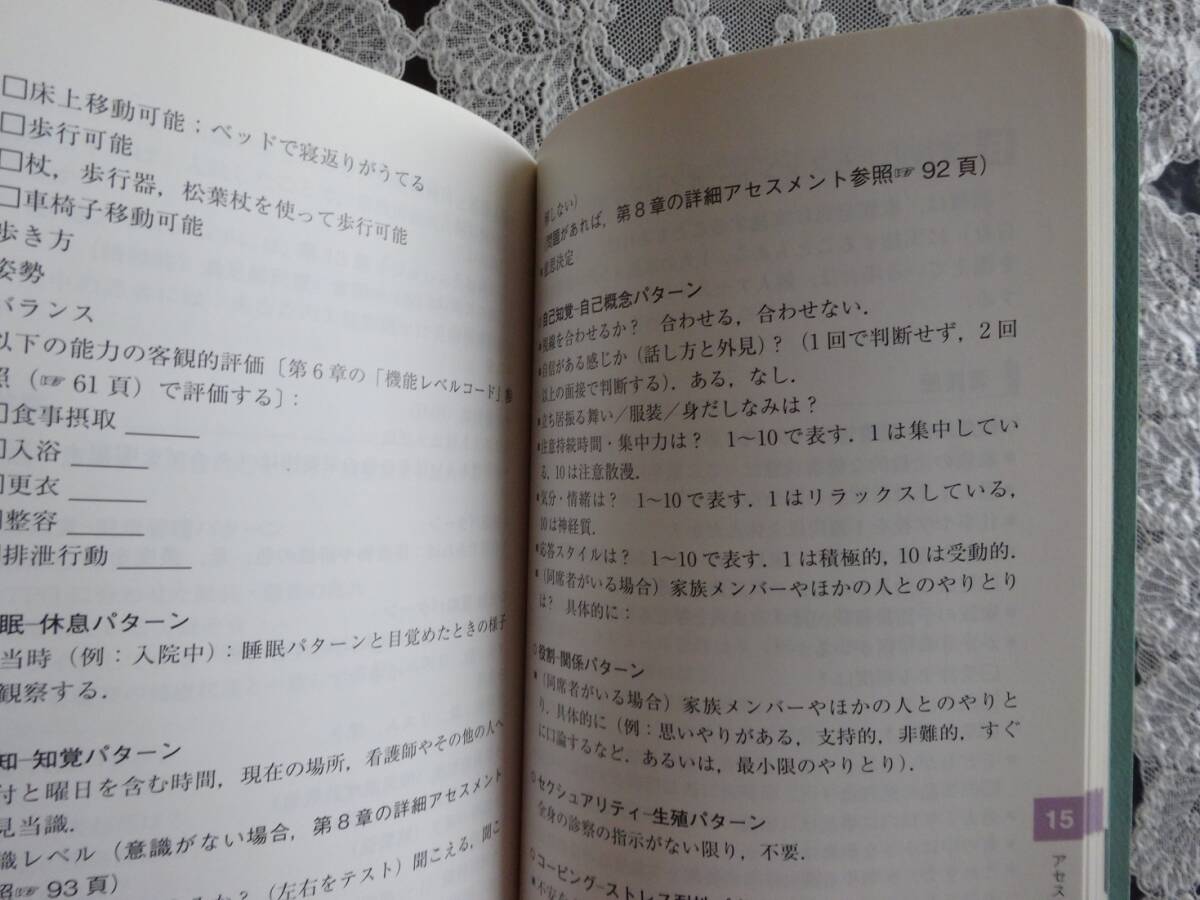 □床上移動可能；ベッドで寝返りがうてる
□歩行可能
□杖，歩行器，松葉杖を使って歩行可能
□車椅子移動可能
歩き方
姿勢
バランス
以下の能力の客観的評価〔第6章の「機能レベルコード」参
照（☞61頁）で評価する〕：
□食事摂取
□入浴
□更衣
□整容
排泄行動
眠-休息パターン
当時（例：入院中）：睡眠パターンと目覚めたときの様子
観察する．
知-知覚パターン
付と曜日を含む時間，現在の場所，看護師やその他の人へ
見当識．
識レベル（意識がない場合，第8章の詳細アセスメント
照☞93頁）
か？（左右をテスト）聞こえる，聞こ
解しない）
問題があれば，第8章の詳細アセスメント参照☞92頁）
●意思決定
○自己知覚-自己概念パターン
●視線を合わせるか？　合わせる，合わせない．
●自信がある感じか（話し方と外見）？（1回で判断せず，2回
以上の面接で判断する）．ある，なし．
●立ち居振る舞い／服装／身だしなみは？
●注意持続時間・集中力は？　1〜10で表す．1は集中してい
る，10は注意散漫．
●気分・情緒は？　1〜10で表す．1はリラックスしている，
10は神経質．
●応答スタイルは？　1〜10で表す．1は積極的，10は受動的．
●（同席者がいる場合）家族メンバーやほかの人とのやりとり
は？　具体的に：
○役割-関係パターン
●（同席者がいる場合）家族メンバーやほかの人とのやりと
り．具体的に（例：思いやりがある，支持的，非難的，すぐ
に口論するなど．あるいは，最小限のやりとり）．
○セクシュアリティ-生殖パターン
全身の診察の指示がない限り，不要．
○コーピング-ストレス耐性
●不安な
15
アセス